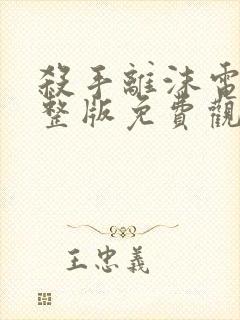 殺手離沫電
整版免費觀
王忠義